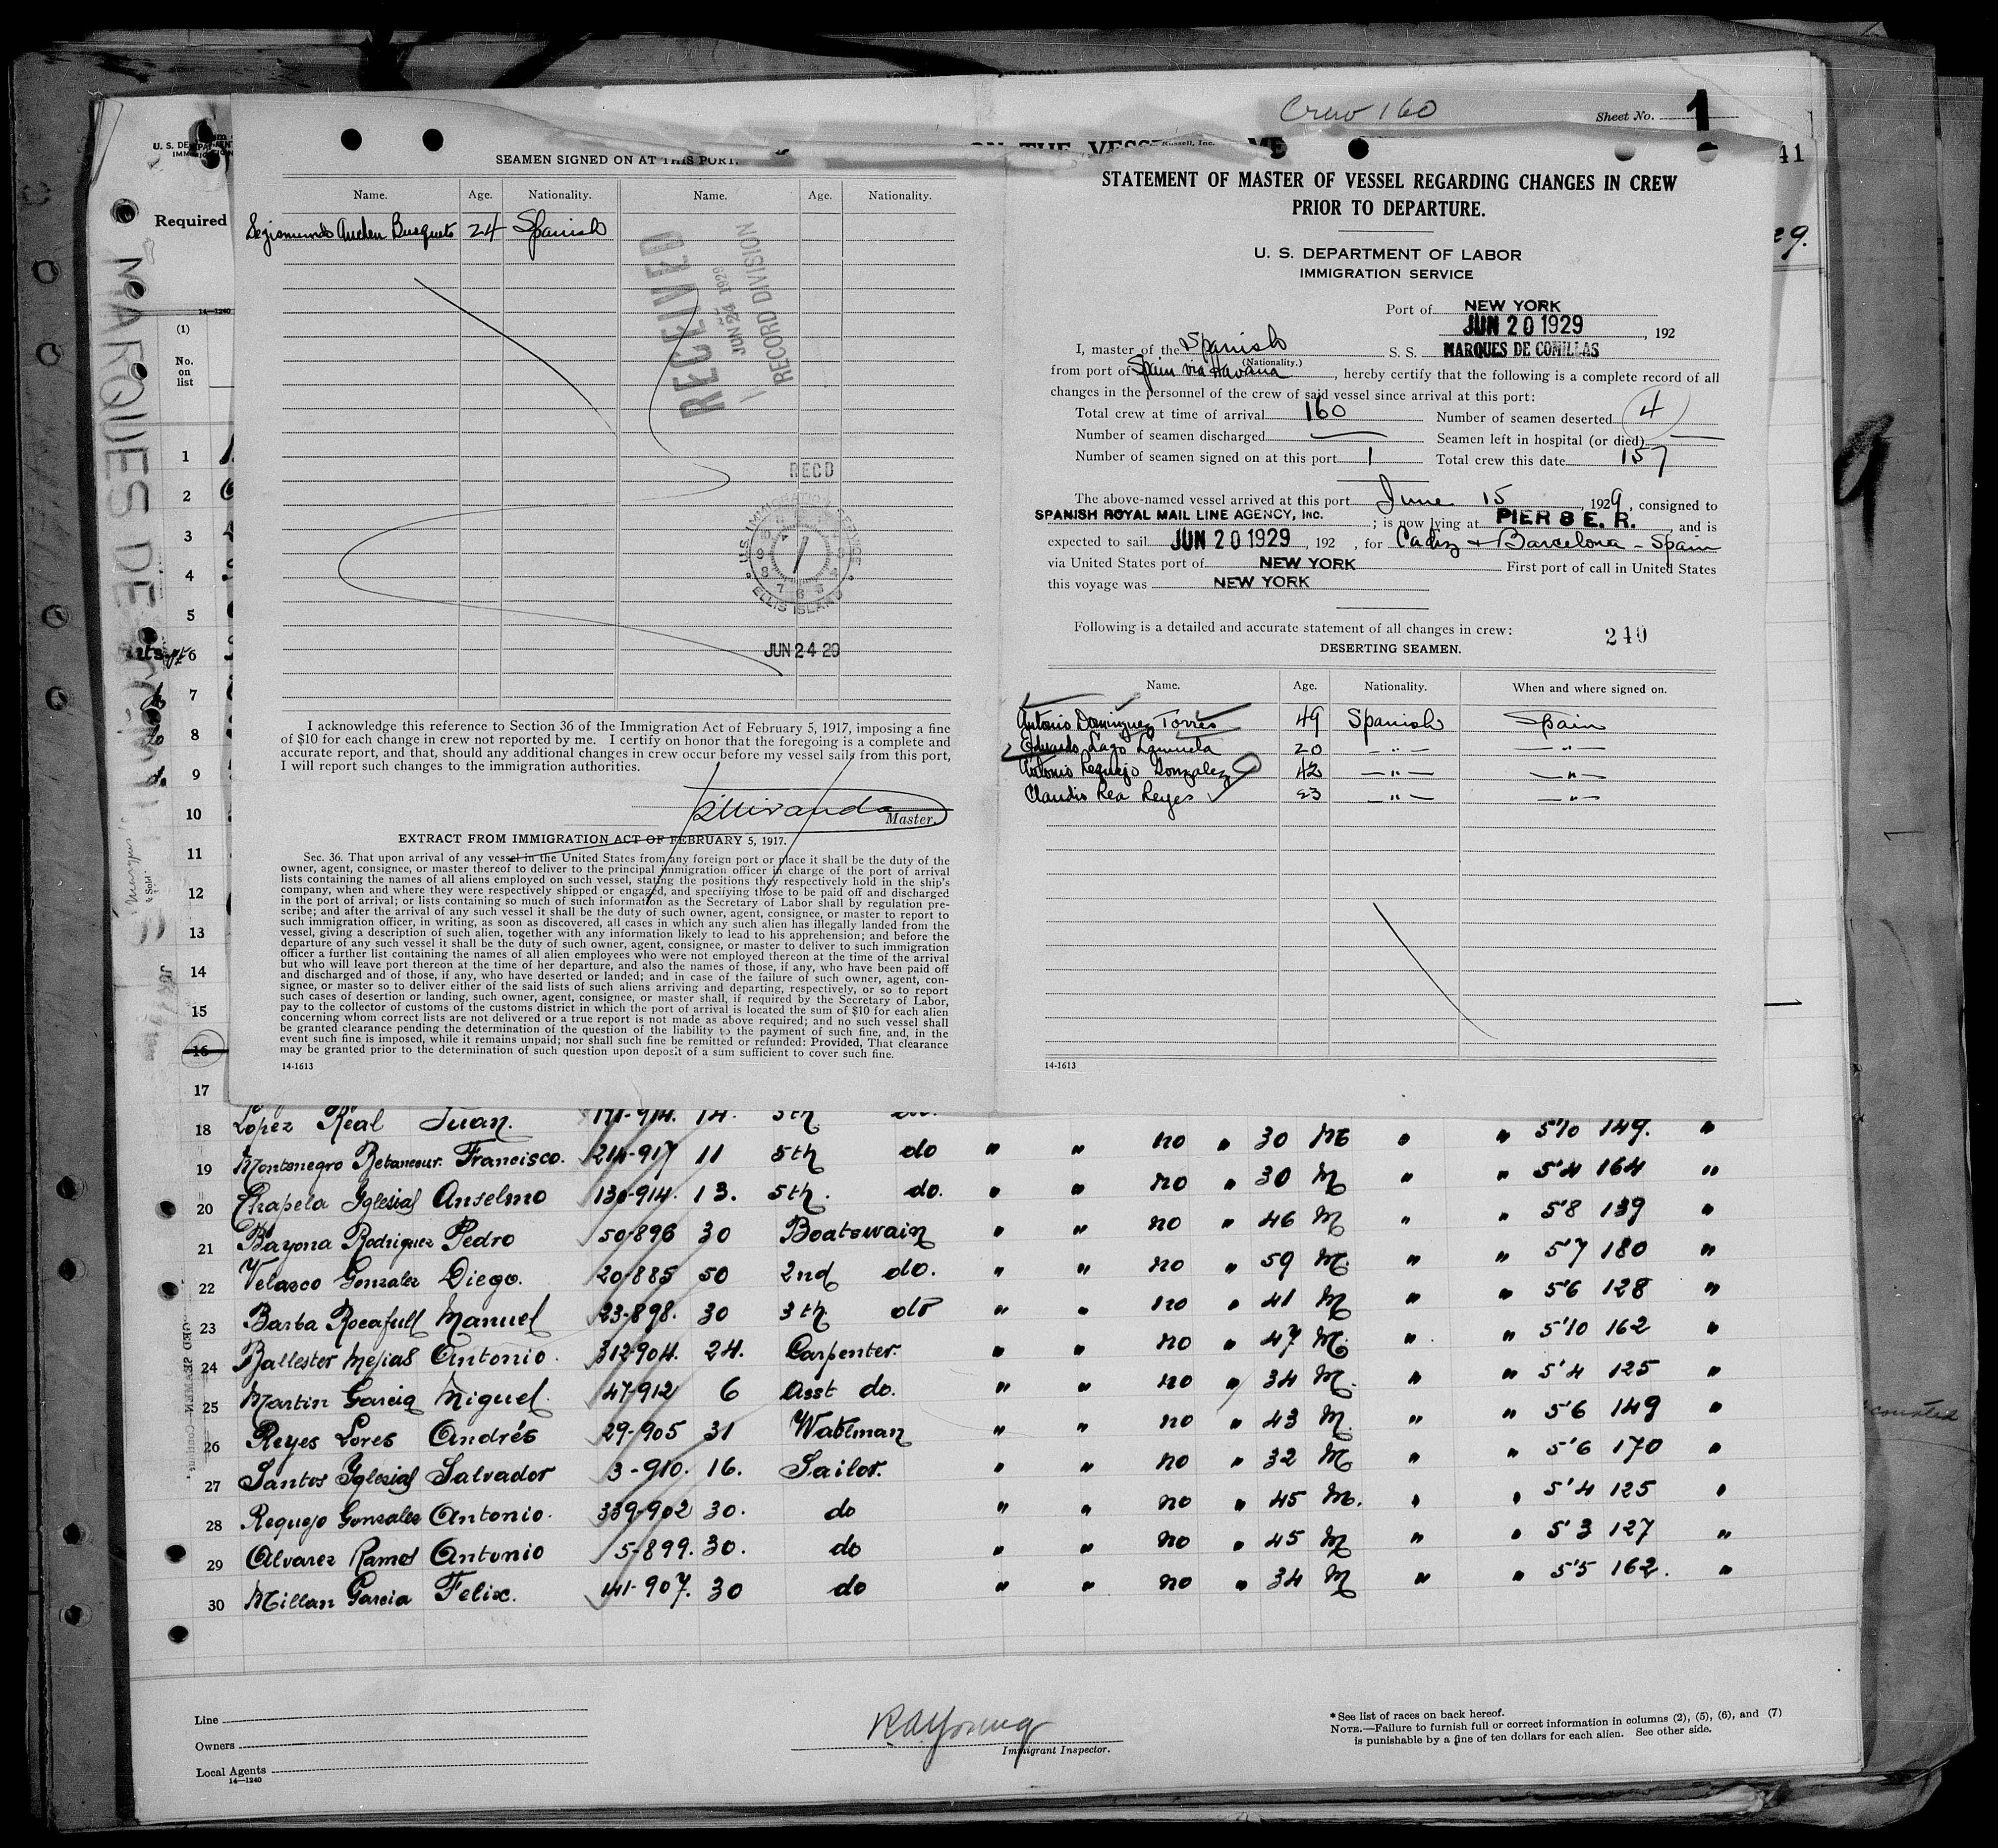 Crew 160
Sheet No. 1
SEAMEN SIGNED ON AT THIS PORT.
Name. Age. Nationality. Name. Age. Nationality.
Busquets 24 Spanish
RECEIVED
JUN 24 1929
RECORD DIVISION
RECD
U.S. IMMIGRATION SERVICE
ELLIS ISLAND
JUN 24 29
I acknowledge this reference to Section 36 of the Immigration Act of February 5, 1917, imposing a fine
of $10 for each change in crew not reported by me. I certify on honor that the foregoing is a complete and
accurate report, and that, should any additional changes in crew occur before my vessel sails from this port,
I will report such changes to the immigration authorities.
Miranda
Master.
EXTRACT FROM IMMIGRATION ACT OF FEBRUARY 5, 1917.
Sec. 36. That upon arrival of any vessel in the United States from any foreign port or place it shall be the duty of the
owner, agent, consignee, or master thereof to deliver to the principal immigration officer in charge of the port of arrival
lists containing the names of all aliens employed on such vessel, stating the positions they respectively hold in the ship's
company, when and where they were respectively shipped or engaged, and specifying those to be paid off and discharged
in the port of arrival; or lists containing so much of such information as the Secretary of Labor shall by regulation pre-
scribe; and after the arrival of any such vessel it shall be the duty of such owner, agent, consignee, or master to report to
such immigration officer, in writing, as soon as discovered, all cases in which any such alien has illegally landed from the
vessel, giving a description of such alien, together with any information likely to lead to his apprehension; and before the
departure of any such vessel it shall be the duty of such owner, agent, consignee, or master to deliver to such immigration
officer a further list containing the names of all alien employees who were not employed thereon at the time of the arrival
but who will leave port thereon at the time of her departure, and also the names of those, if any, who have been paid off
and discharged and of those, if any, who have deserted or landed; and in case of the failure of such owner, agent, con-
signee, or master so to deliver either of the said lists of such aliens arriving and departing, respectively, or so to report
such cases of desertion or landing, such owner, agent, consignee, or master shall, if required by the Secretary of Labor,
pay to the collector of customs of the customs district in which the port of arrival is located the sum of $10 for each alien
concerning whom correct lists are not delivered or a true report is not made as above required; and no such vessel shall
be granted clearance pending the determination of the question of the liability to the payment of such fine, and, in the
event such fine is imposed, while it remains unpaid; nor shall such fine be remitted or refunded: Provided, That clearance
may be granted prior to the determination of such question upon deposit of a sum sufficient to cover such fine.
14-1613
STATEMENT OF MASTER OF VESSEL REGARDING CHANGES IN CREW
PRIOR TO DEPARTURE.
U. S. DEPARTMENT OF LABOR
IMMIGRATION SERVICE
Port of NEW YORK
JUN 20 1929, 192
I, master of the Spanish S. S. MARQUES DE COMILLAS
(Nationality.)
from port of Spain via Havana, hereby certify that the following is a complete record of all
changes in the personnel of the crew of said vessel since arrival at this port:
Total crew at time of arrival 160 Number of seamen deserted 4
Number of seamen discharged — Seamen left in hospital (or died) —
Number of seamen signed on at this port 1 Total crew this date 157
The above-named vessel arrived at this port June 15, 1929, consigned to
SPANISH ROYAL MAIL LINE AGENCY, INC.; is now lying at PIER 8 E. R., and is
expected to sail JUN 20 1929, 192 , for Cadiz + Barcelona - Spain
via United States port of NEW YORK First port of call in United States
this voyage was NEW YORK
Following is a detailed and accurate statement of all changes in crew: 240
DESERTING SEAMEN.
Name. Age. Nationality. When and where signed on.
Antonio Dominguez Torres 49 Spanish Spain
Eduardo Lago 20 — " — — " —
Antonio Requejo Gonzalez 42 — " — — " —
Claudio Rea Reyes 23 — " — — " —
14-1613
Required
MARQUES DE COMILLAS
14-1240
(1)
No.
on
list
1
2
3
4
5
6
7
8
9
10
11
12
13
14
15
16
17
18 Lopez Real Juan. 171-914. 14. 5th do.
19 Montenegro Betancour. Francisco. 211-917 11 5th do " " no " 30 M " " 5'10 149. "
20 Chapela Iglesias Anselmo 130-914. 13. 5th. do. " " no " 30 M " " 5'4 164 "
21 Bayona Rodriguez Pedro 50-896 30 Boatswain " " no " 46 M " " 5'8 139 "
22 Velasco Gonzalez Diego. 20-885 50 2nd do. " " no " 59 M. " " 5'7 180 "
23 Barba Rocafull Manuel 23-898. 30 3th do " " no " 41 M " " 5'6 128 "
24 Ballester Mejias Antonio. 312-904. 24. Carpenter. " " no " 47 M. " " 5'10 162 "
25 Martin Garcia Miguel. 47-912 6 Asst do. " " no " 34 M. " " 5'4 125 "
26 Reyes Lores Andrés 29-905 31 Watman " " no " 43 M. " " 5'6 149 "
27 Santos Iglesias Salvador 3-910. 16. Sailor. " " no " 32 M " " 5'6 170 "
28 Requejo Gonsales Antonio. 339-902 30. do " " no " 45 M. " " 5'4 125 "
29 Alvarez Ramos Antonio 5-899. 30. do " " no " 45 M " " 5'3 127 "
30 Millan Garcia Felix. 141-907. 30 do " " no " 34 M " " 5'5 162. "
Line
Owners
Local Agents
14-1240
R A Young
Immigrant Inspector.
*See list of races on back hereof.
NOTE.—Failure to furnish full or correct information in columns (2), (5), (6), and (7)
is punishable by a fine of ten dollars for each alien. See other side.